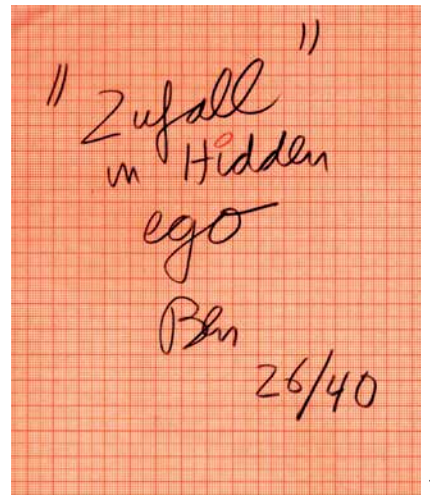 "Zufall"
in Hidden
ego
Ben
26/40